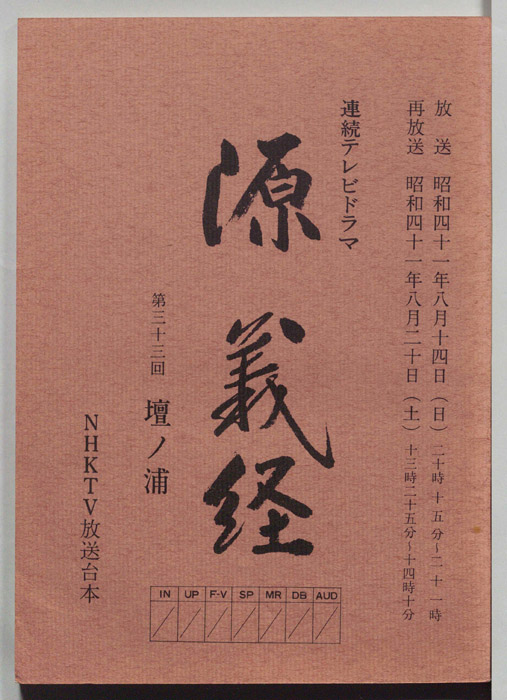 放送　昭和四十一年八月十四日（日）二十時十五分～二十一時
再放送　昭和四十一年八月二十日（土）十三時二十五分～十四時十分
連続テレビドラマ
源義経
第三十三回　壇ノ浦
NHKTV放送台本
IN UP F-V SP MR DB AUD